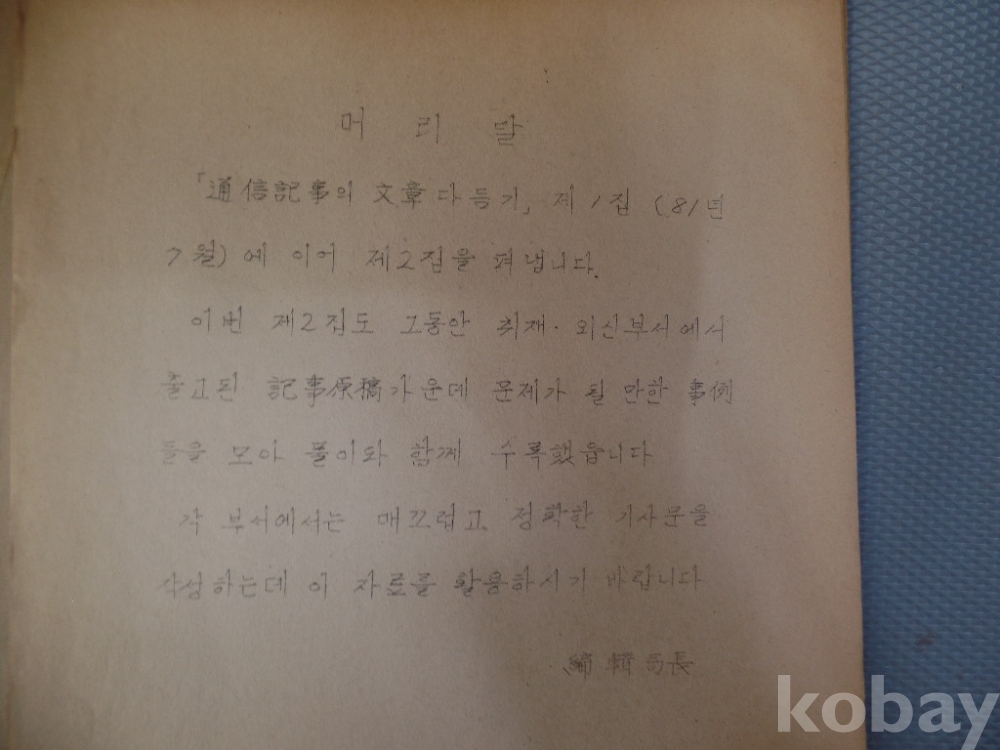 머 리 말
「通信記事의 文章다듬기」 제1집 (81년
7월)에 이어 제2집을 펴냅니다.
이번 제2집도 그동안 취재·외신부서에서
출고된 記事原稿가운데 문제가 될 만한 事例
들을 모아 풀이와 함께 수록했읍니다
각 부서에서는 매끄럽고 정확한 기사문을
작성하는데 이 자료를 활용하시기 바랍니다
編輯局長
kobay